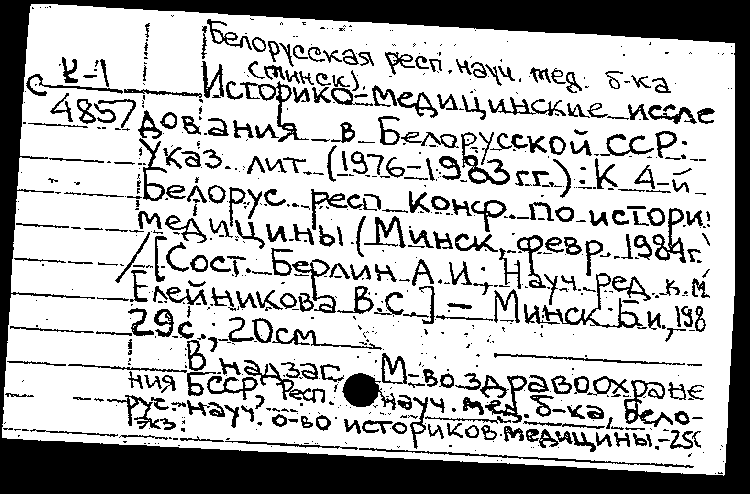 Белорусская респ. науч. мед. б-ка
(Минск).
К-1
С
4857
Историко-медицинские иссле
дования в Белорусской ССР:
Указ. лит. (1976-1983 гг.): К 4-й
Белорус. респ конф. по истори
медицины (Минск, февр. 1984г.
/ [Сост. Берлин А.И.; Науч. ред. к.м
Елейникова В.С.] – Минск: Б.и, 198
29с.; 20см
В надзаг. М-во здравоохране
ния БССР, Респ. науч. мед. б-ка, Бело-
рус. науч. о-во историков медицины.-25
экз.